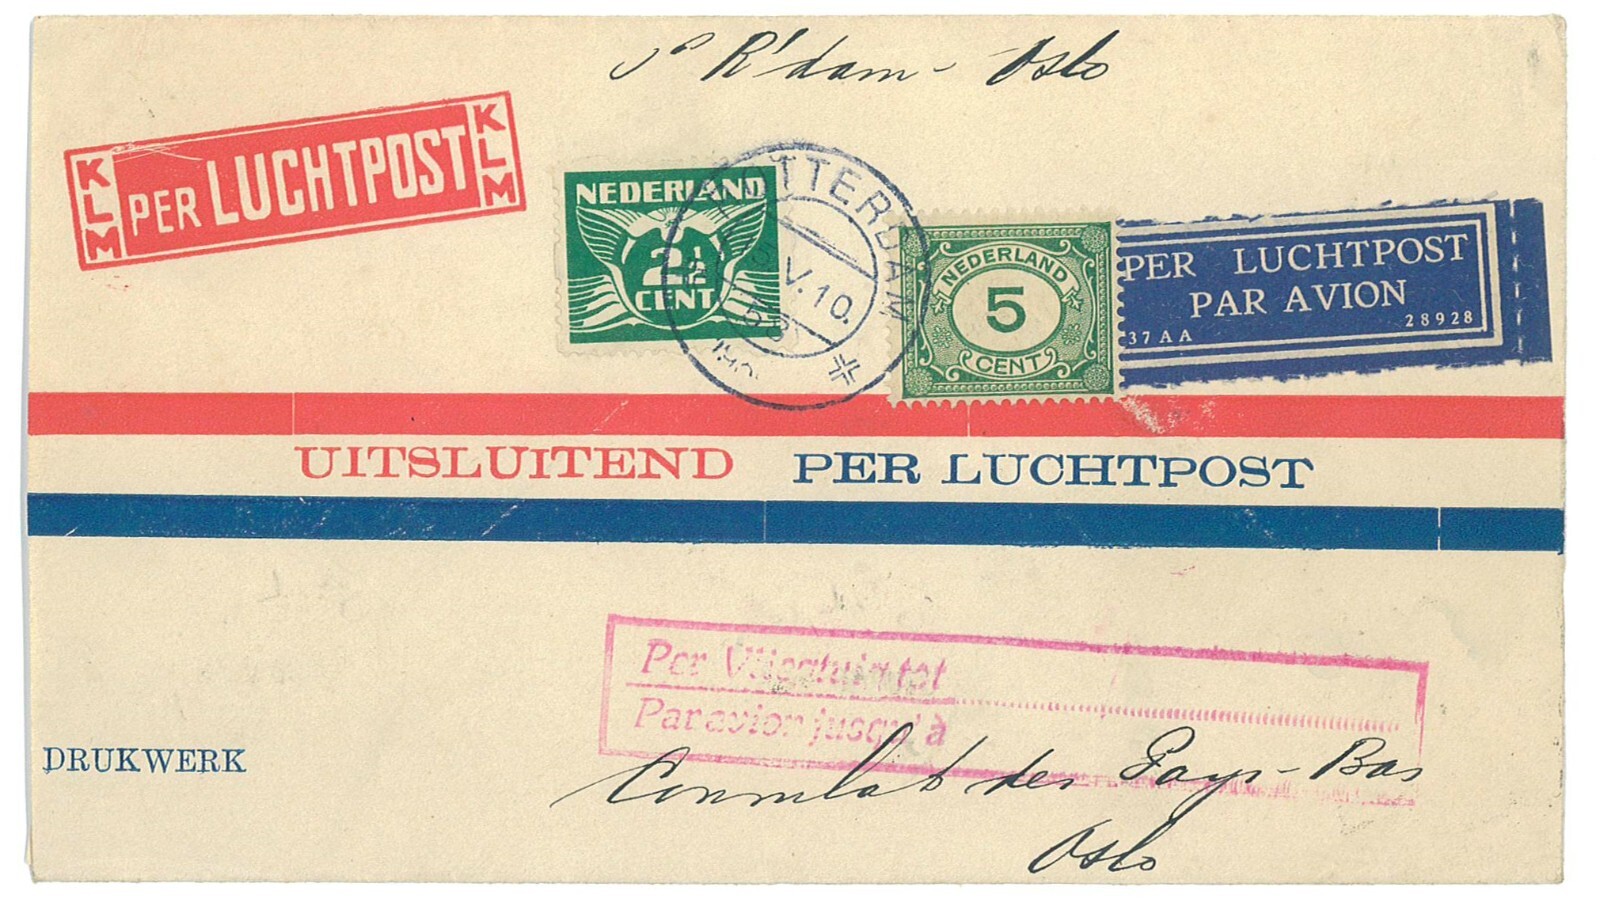 P R'dam - Oslo
KLM PER LUCHTPOST KLM
NEDERLAND
2½
CENT
ROTTERDAM
V.10.
NEDERLAND
5
CENT
PER LUCHTPOST
PAR AVION
37 AA 28928
UITSLUITEND PER LUCHTPOST
Per Vliegtuig tot
Par avion jusqu'à
DRUKWERK
Consulat des Pays-Bas
Oslo